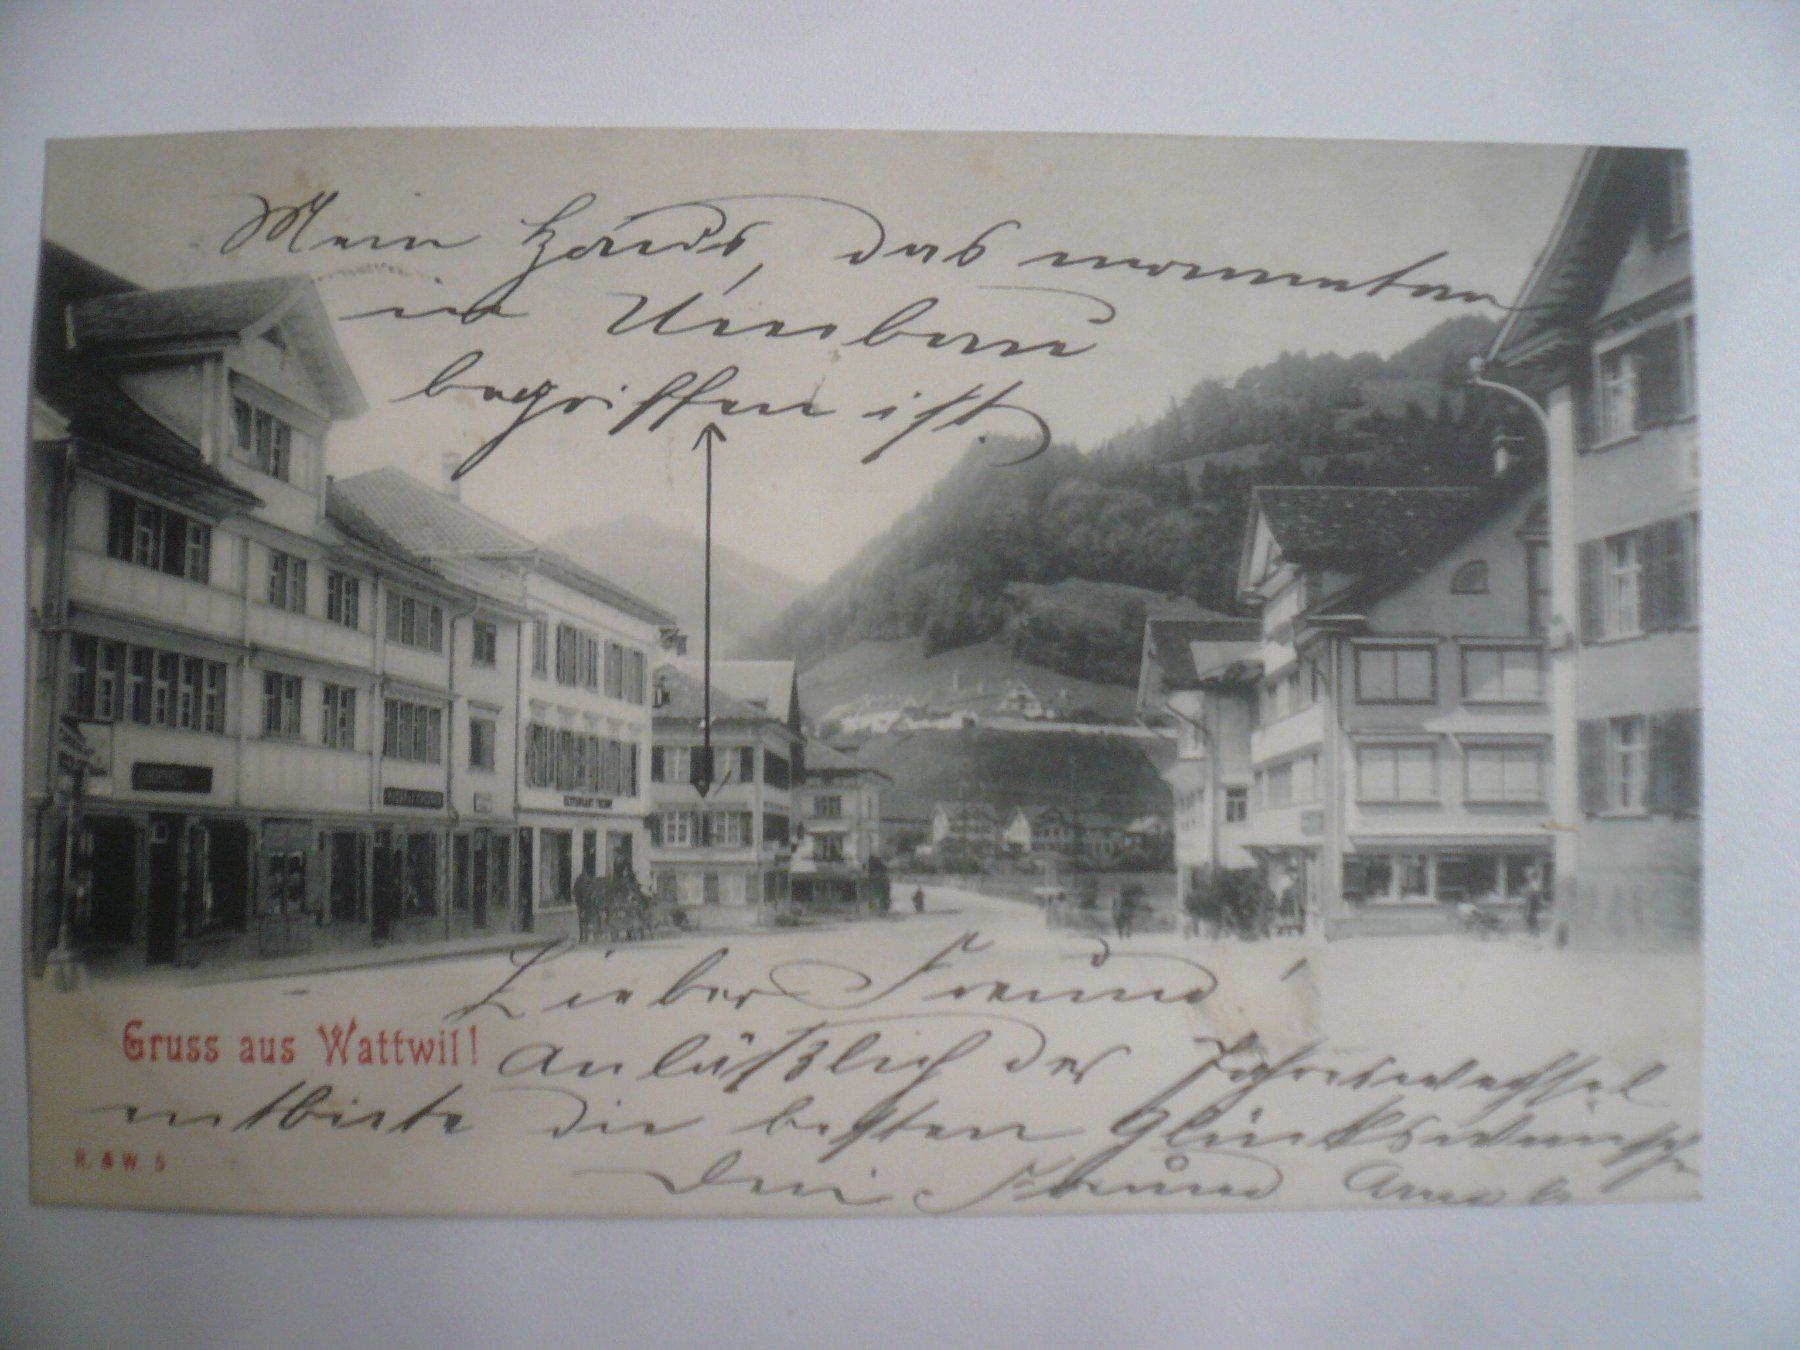 Mein Haus, das momentan
in Umbau
begriffen ist.
Lieber Freund!
Gruss aus Wattwil!
anläßlich des Jahreswechsel
entbiete die besten Glückswünsche
Dein Freund
R. & W. 5